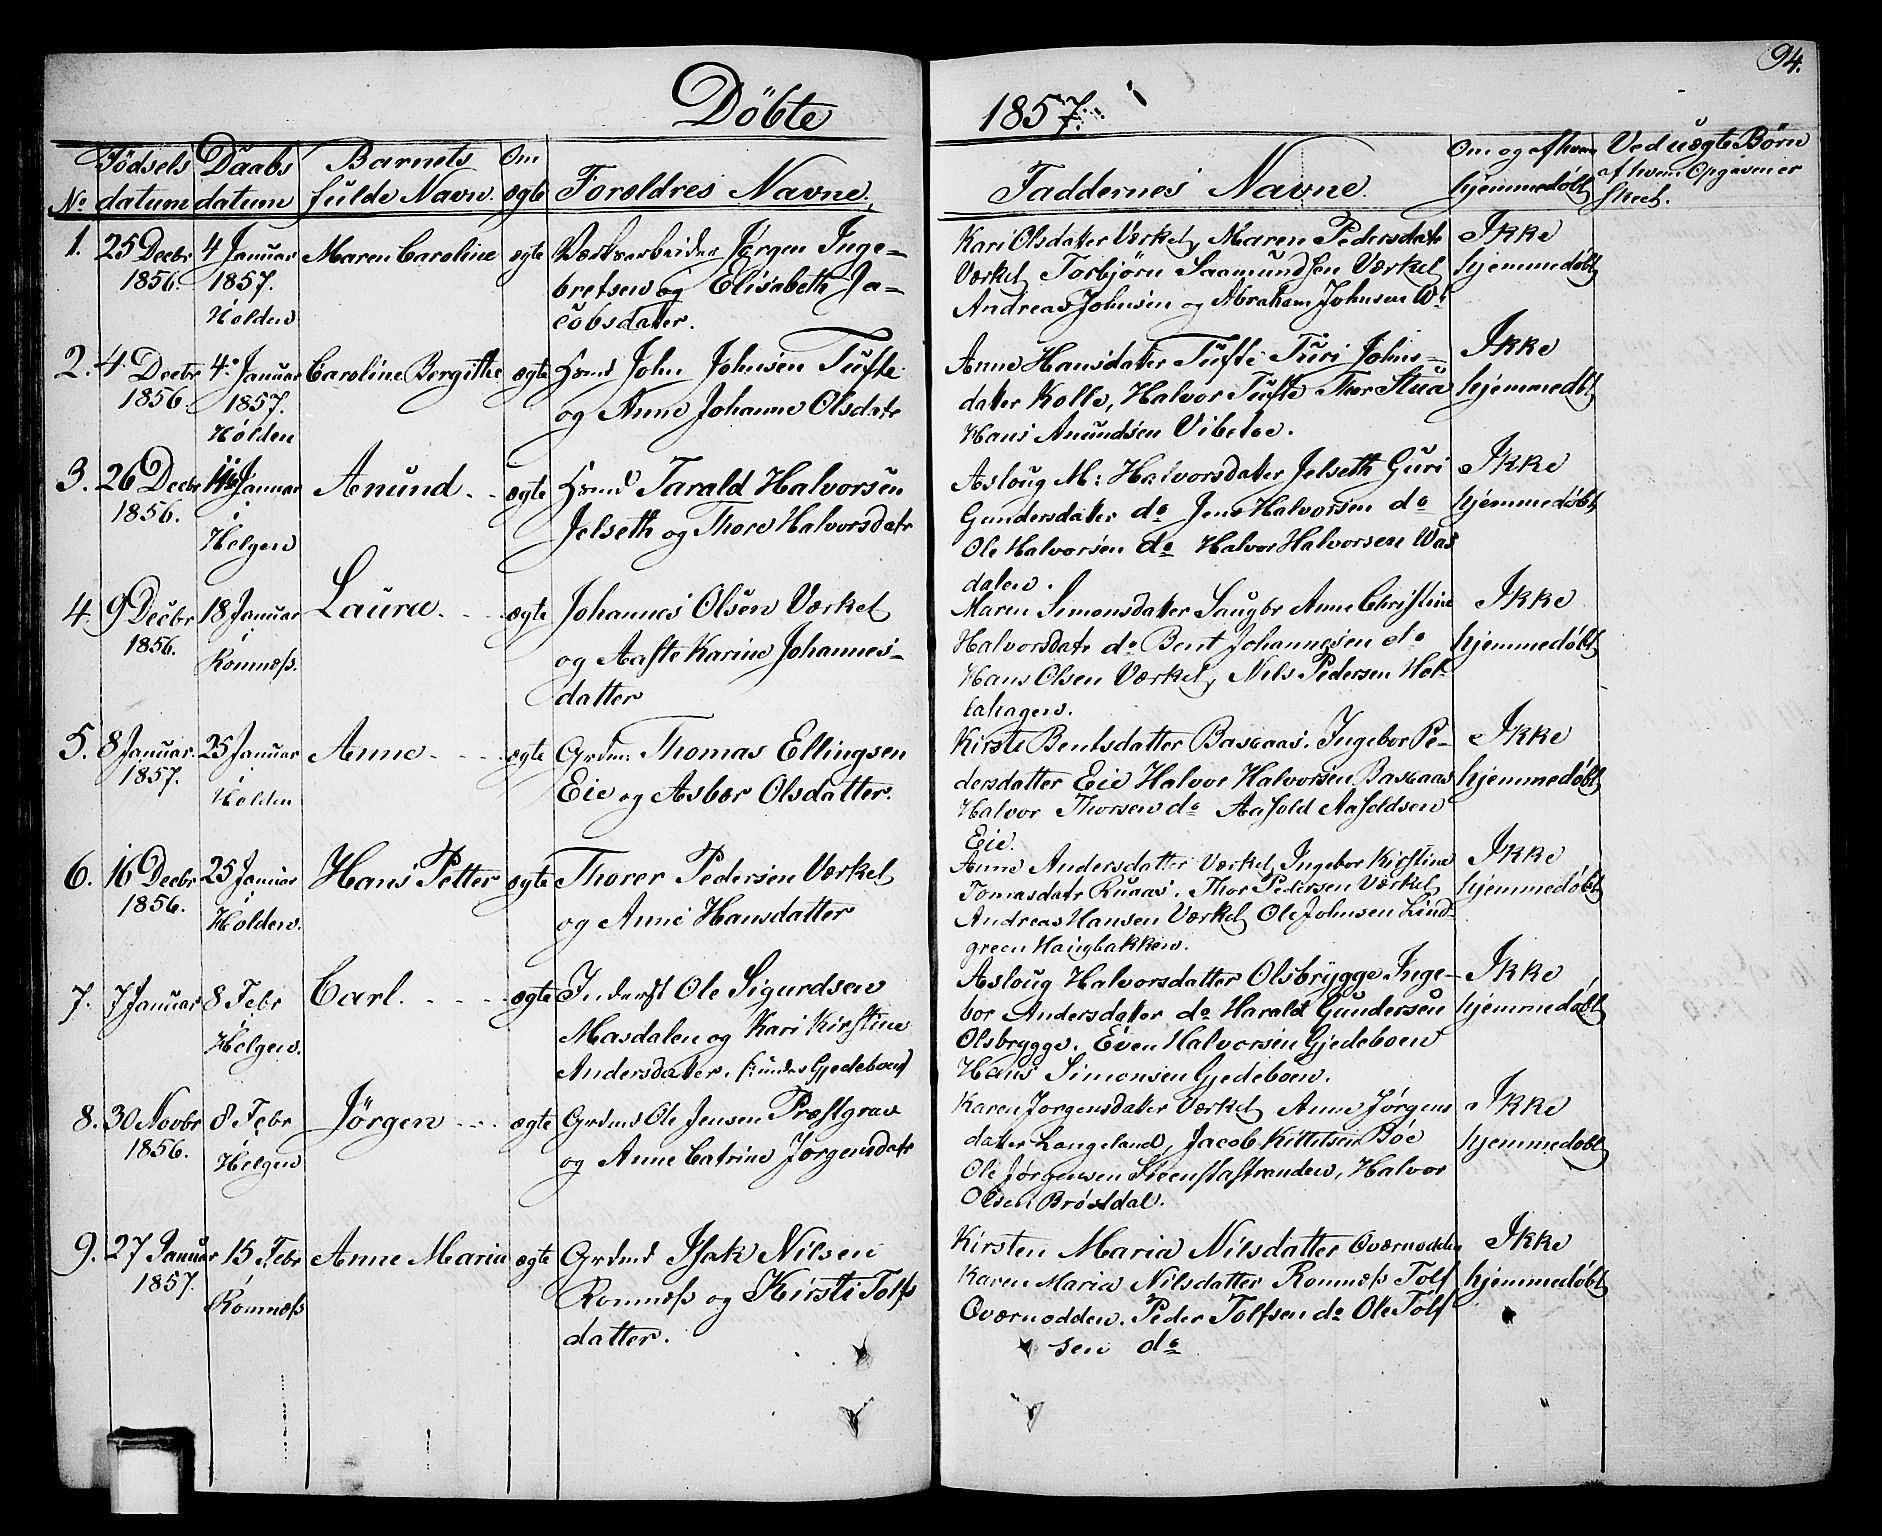 94.
Döbte 1857.
No. Födsels datum
Daabs datum
Barnets fulde Navn.
Om ægte
Forældres Navne.
Faddernes Navne.
Om og af hvem hjemmedøbt
Ved uægte Børn af hvem Opgaven er skeet.
1. 25 Decbr 1856.
4 Januar 1857. Holden
Maren Caroline
ægte
Værksarbeider Jörgen Inge-
bretsen og Elisabeth Ja-
cobsdater.
Kari Olsdater Værket, Maren Pedersdatr
Værket Torbjørn Saamundsen Værket
Andreas Johnsen og Abraham Johnsen
Ikke
hjemmedøbt
2. 4. Decbr 1856.
4. Januar 1857. Holden
Caroline Bergithe
ægte
John Johnsen Tufte
og Anne Johanne Olsdatr
Anne Hansdater Tufte Turi Johns-
dater Kolle, Halvor Tufte Thor Stua
Hans Anundsen Vibetoe.
Ikke
hjemmedbt,
3. 26 Decbr 1856.
11 Januar i Helgen
Anund.
ægte
Tarald Halvorsen
Jelseth og Thore Halvorsdatr
Asloug M: Halvorsdater Jelseth Guri
Gundersdater do Jens Halvorsen do
Ole Halvorsen do Halvor Halvorsen Was
dalen.
Ikke
hjemmedøbt
4. 9 Decbr 1856.
18 Januar i Romnæss.
Laura.
ægte
Johannes Olsen Værket
og Aaste Karine Johannes-
datter
Maren Simonsdater Saugbr Anne Christine
Halvorsdatr do Bent Johannesen do
Hans Olsen Værket, Nils Pedersen Hol-
tahagen.
Ikke
hjemmedøbt
5. 8 Januar. 1857.
25 Januar i Holden
Anne
ægte
Grdm: Thomas Ellingsen
Eie og Asbær Olsdatter.
Kirsti Bentsdatter Basaas. Ingebor Pe-
dersdatter Eie Halvor Halvorsen Basaas
Halvor Thorsen do Aasold Aasoldsen
Eie.
Ikke
hjemmedøbt
6. 16 Decbr 1856.
25 Januar Holden.
Hans Petter
ægte
Thorer Pedersen Værket
og Anne Hansdatter
Anne Andersdatter Værket, Ingebor Kirstine
Tomasdatr Ruaas. Thor Pedersen Værket
Andreas Hansen Værket Ole Johnsen Lind-
green Haugbakken.
Ikke
hjemmedøbt
7. 7 Januar
8 Febr i Helgen.
Carl.
ægte
Inderst Ole Sigurdsen
Masdalen og Kari Kirstine
Andersdater. (: under Gjedeboen)
Asloug Halvorsdatter Olsbrygge Inge-
bor Andersdater do Harald Gundersen
Olsbrygge. Even Halvorsen Gjedeboen
Hans Simonsen Gjedeboen.
Ikke
hjemmedøbt
8. 30 Novbr 1856.
8 Febr i Helgen
Jørgen
ægte
Grdmd Ole Jensen Præstgrav
og Anne Catrine Jørgensdatr
Karen Jorgensdater Værket Anne Jørgens
dater Langeland, Jacob Kittelsen Böe
Ole Jørgensen Steenstastranden, Halvor
Olsen Brøstdal.
Ikke
hjemmedøbt
9. 27 Januar 1857.
15 Febr i Romnæss
Anne Maria
ægte
Grdmd Isak Nilsen
Romnæss og Kirsti Tolfs
datter.
Kirsten Maria Nilsdatter Oværnodden
Karen Maria Nilsdatter Romnæss Tolf
Oværnodden. Peder Tolfsen do Ole Tolf
sen do
Ikke
hjemmedøbt